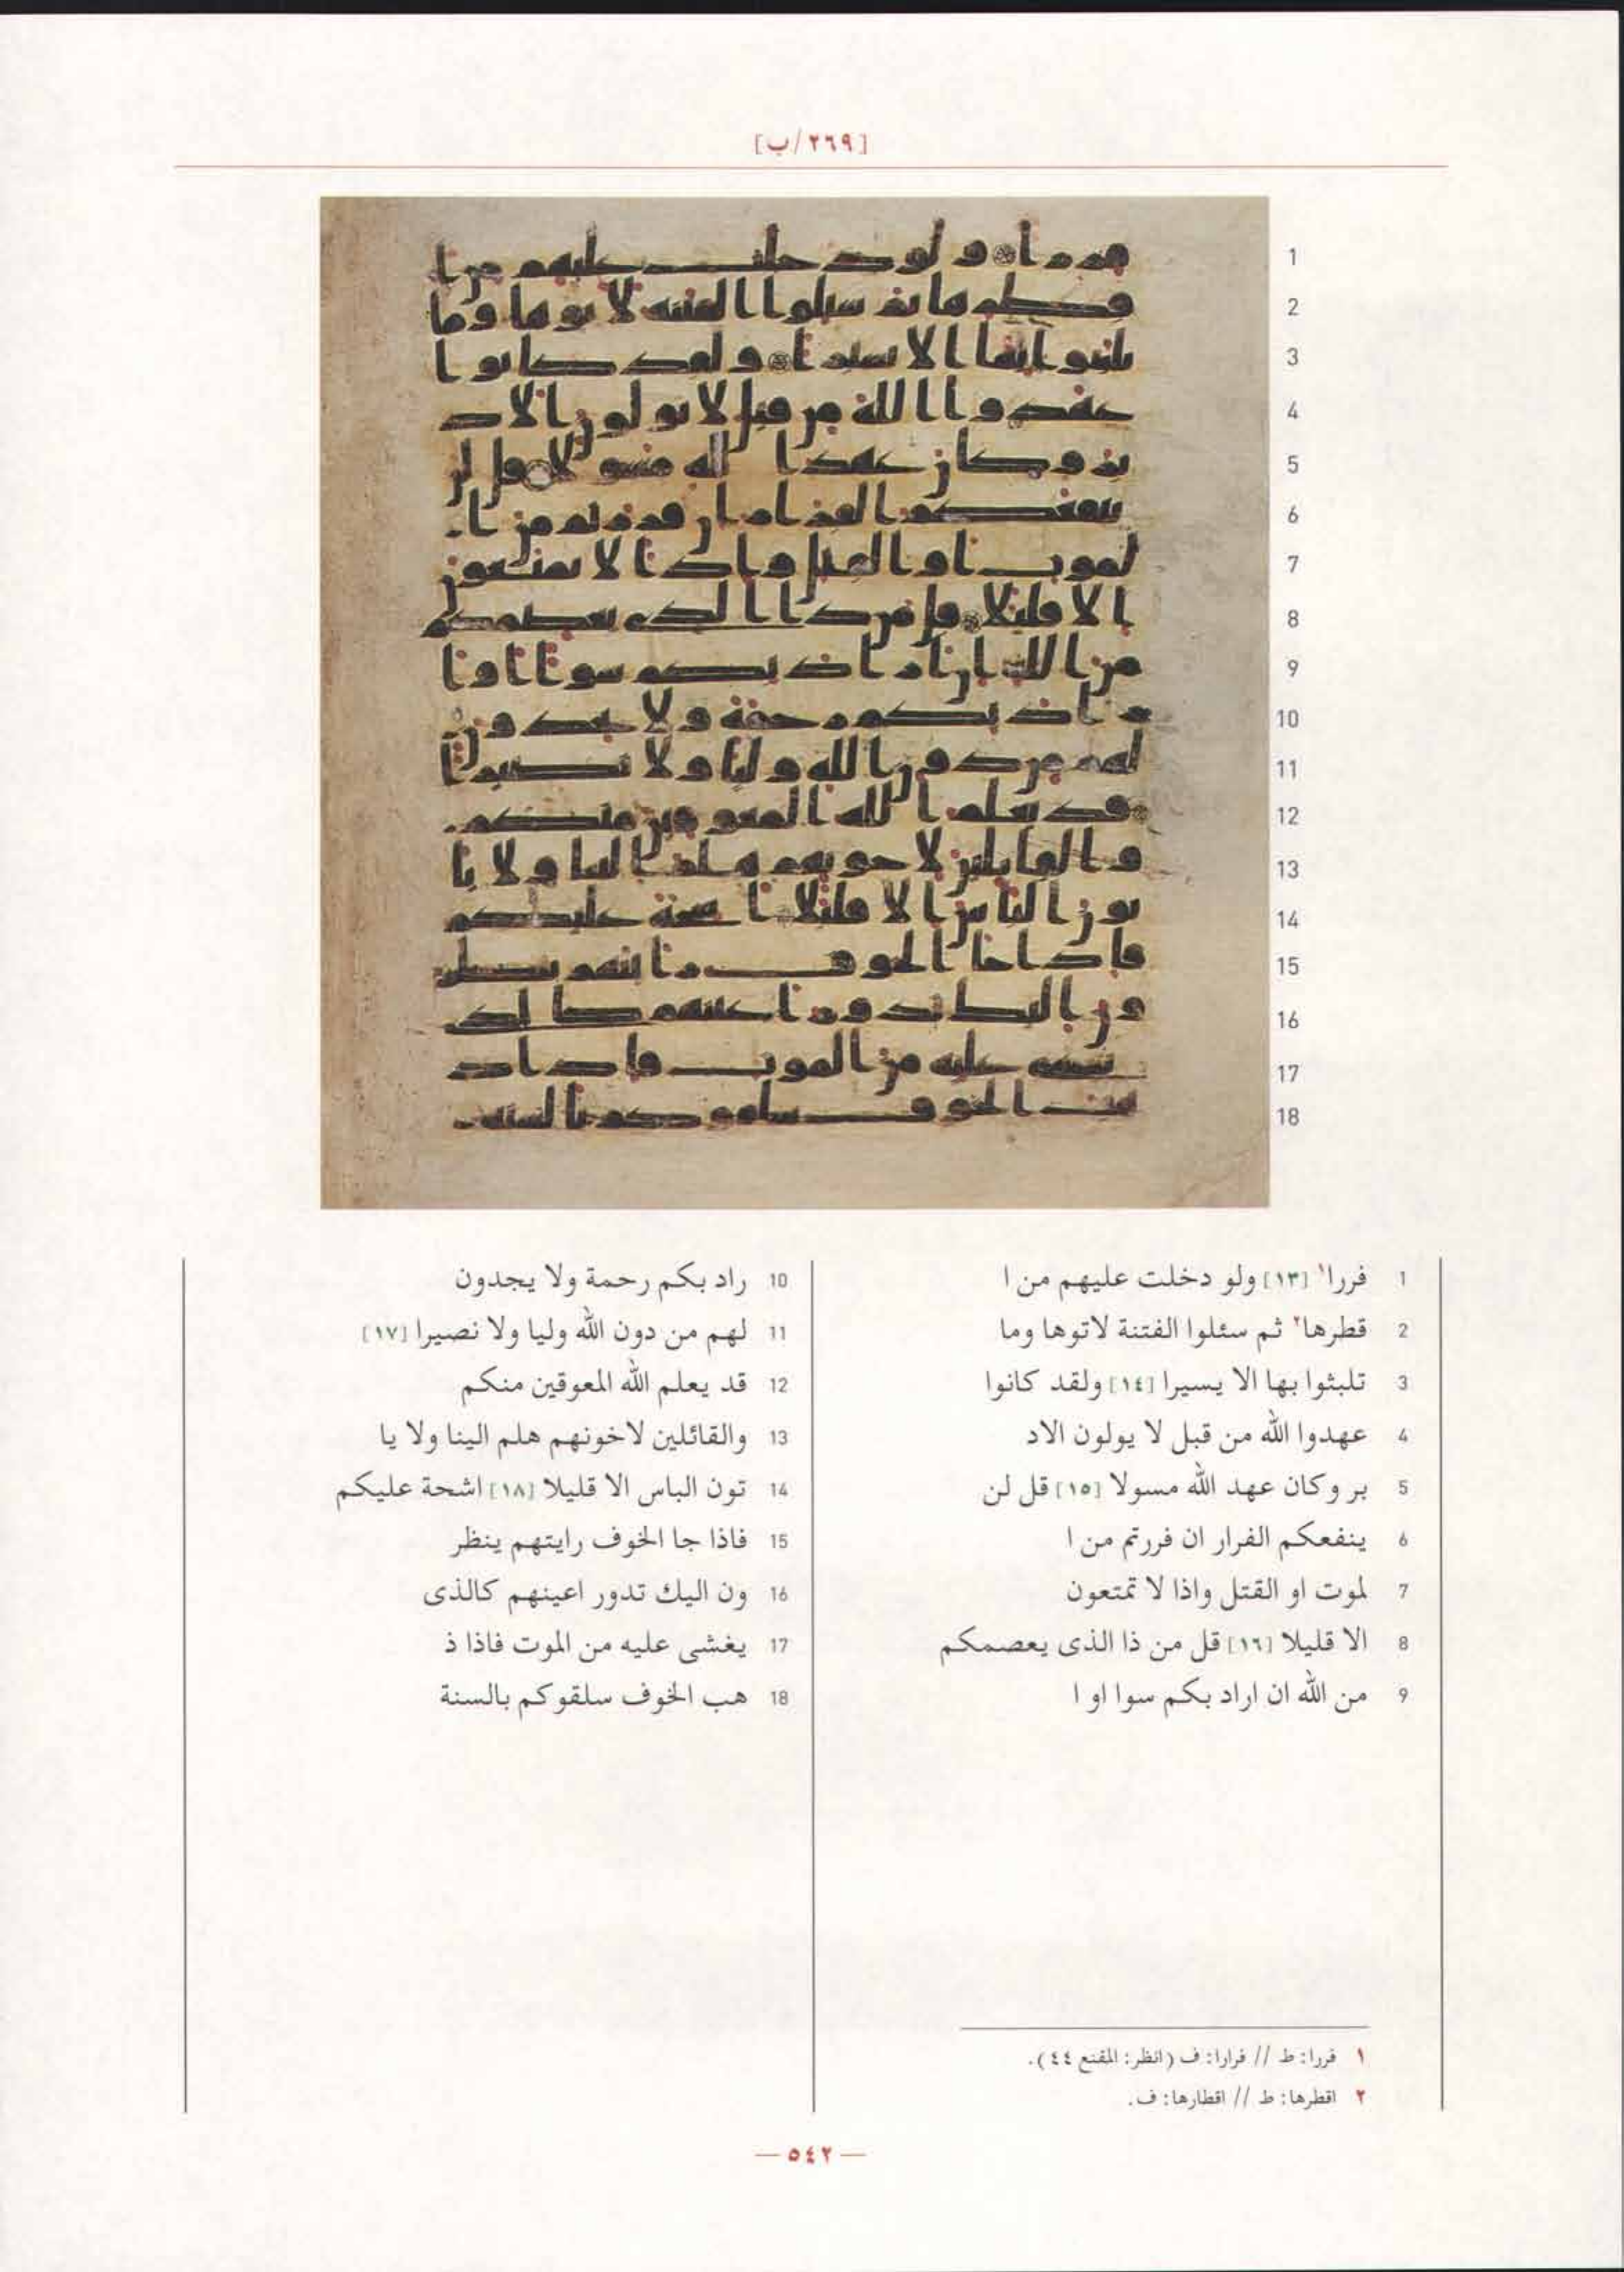 [٢٦٩/ب]
1
2
3
4
5
6
7
8
9
10
11
12
13
14
15
16
17
18
1 فررا١ [١٣] ولو دخلت عليهم من ا
2 قطرها٢ ثم سئلوا الفتنة لاتوها وما
3 تلبثوا بها الا يسيرا [١٤] ولقد كانوا
4 عهدوا الله من قبل لا يولون الاد
5 بر وكان عهد الله مسولا [١٥] قل لن
6 ينفعكم الفرار ان فررتم من ا
7 لموت او القتل واذا لا تمتعون
8 الا قليلا [١٦] قل من ذا الذى يعصمكم
9 من الله ان اراد بكم سوا او ا
10 راد بكم رحمة ولا يجدون
11 لهم من دون الله وليا ولا نصيرا [١٧]
12 قد يعلم الله المعوقين منكم
13 والقائلين لاخونهم هلم الينا ولا يا
14 تون الباس الا قليلا [١٨] اشحة عليكم
15 فاذا جا الخوف رايتهم ينظر
16 ون اليك تدور اعينهم كالذى
17 يغشى عليه من الموت فاذا ذ
18 هب الخوف سلقوكم بالسنة
١ فررا: ط // فرارا: ف (انظر: المقنع ٤٤).
٢ اقطرها: ط // اقطارها: ف.
— ٥٤٢ —